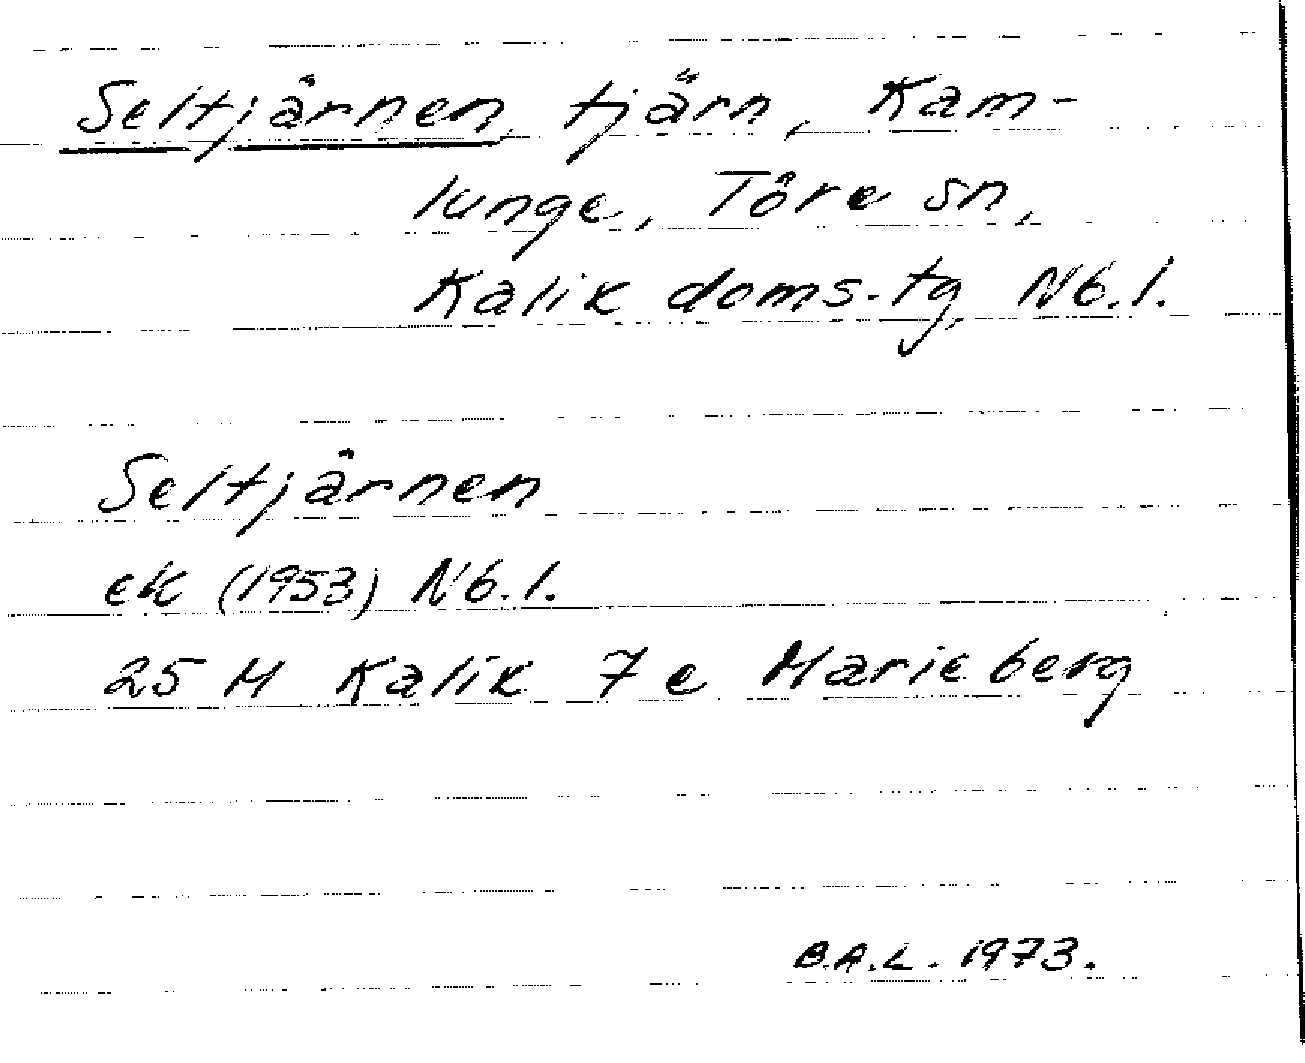 Seltjärnen, tjärn, Kam-
lunge, Töre sn,
Kalix doms.tg, Nb.l.
Seltjärnen
ek (1953) Nb.l.
25 M Kalix 7 e Marieberg
B.A.L. 1973.